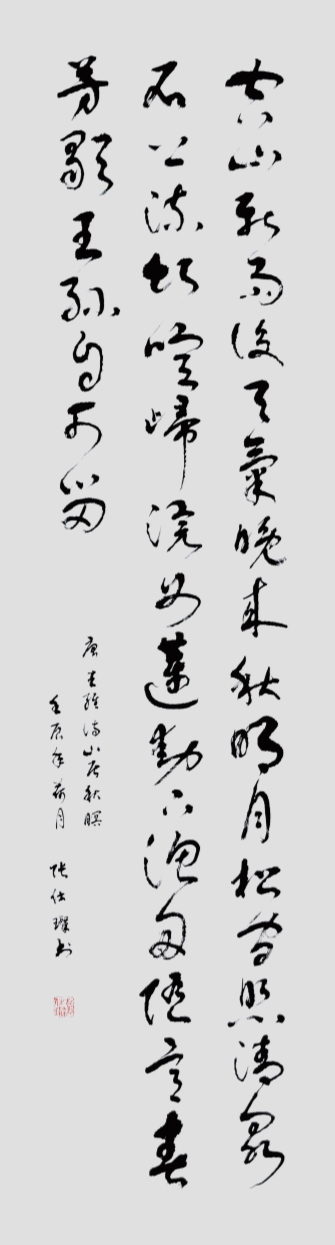 空山新雨後天氣晚來秋明月松間照清泉
石上流竹喧歸浣女蓮動下漁舟隨意春
芳歇王孫自可留
唐王維詩山居秋暝
壬辰年 月 張仕 書